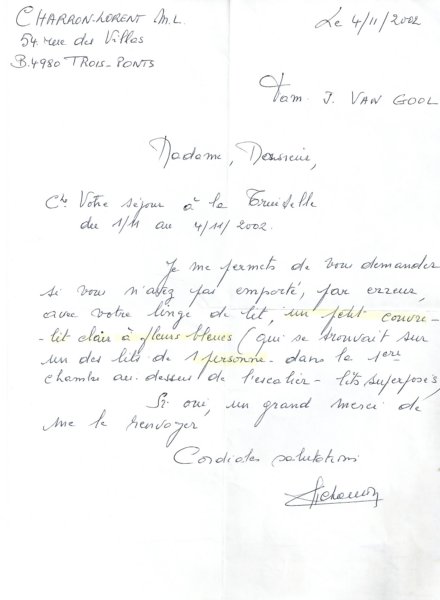 CHARRON-LORENT M.L.
54. rue des Villas
B.4980 TROIS-PONTS
Le 4/11/2002
Fam. J. VAN GOOL
Madame, Monsieur,
Votre séjour à la
du 1/11 au 4/11/2002.
Je me permets de vous demander
si vous n'avez pas emporté, par erreur,
avec votre linge de lit, un petit couvre-
lit clair à fleurs bleues (qui se trouvait sur
un des lits de 1 personne dans la 1ere
chambre au dessus de l'escalier - lits superposés,
Si oui, un grand merci de
me le renvoyer
Cordiales salutations